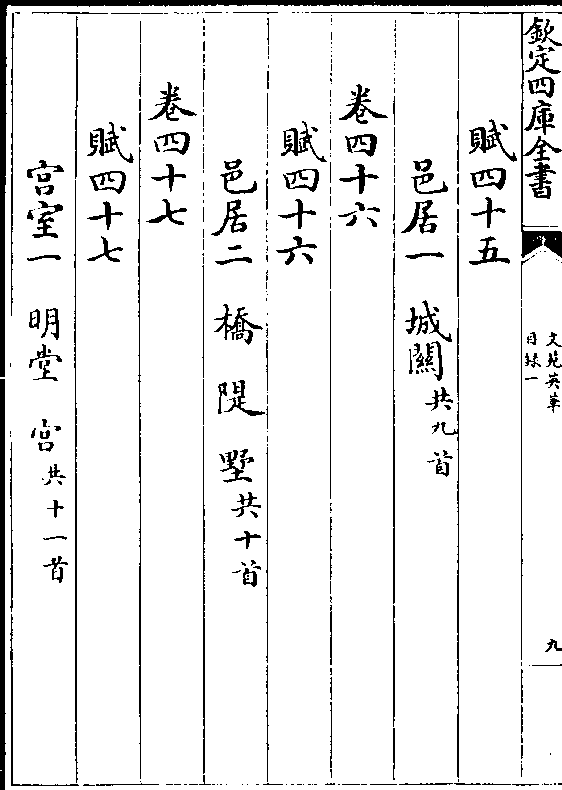 欽定四庫全書
文苑英華
目録一
九
賦四十五
邑居一 城闗共九首
卷四十六
賦四十六
邑居二 橋 隄 墅共十首
卷四十七
賦四十七
宫室一 明堂 宫共十一首